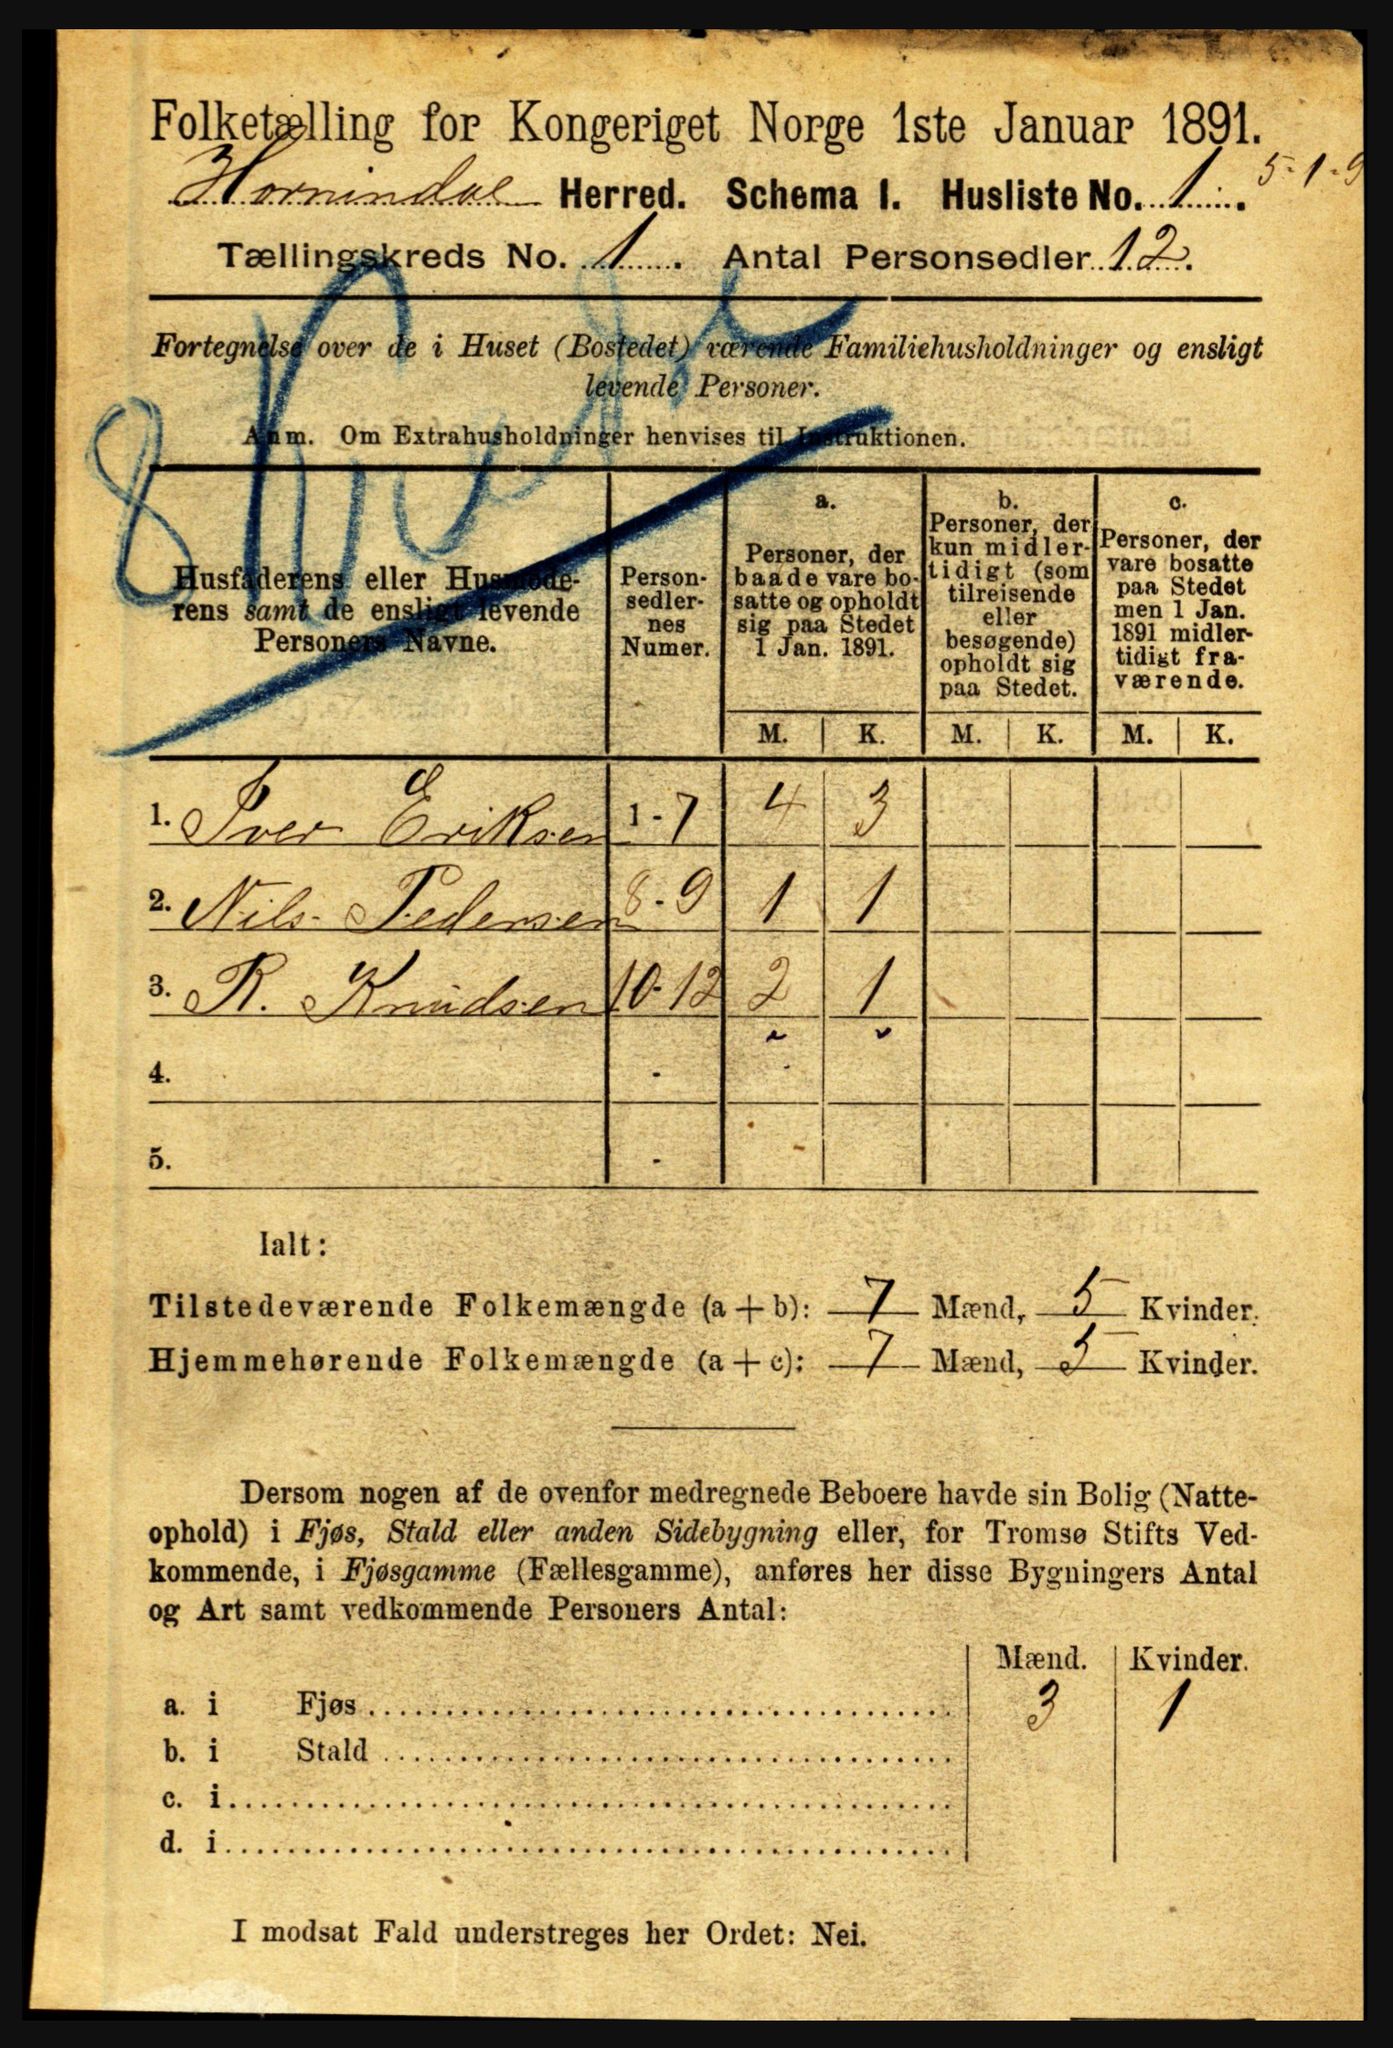 Folketælling for Kongeriget Norge 1ste Januar 1891.
Hornindal Herred. Schema I. Husliste No. 1. 5-1-9
Tællingskreds No. 1. Antal Personsedler 12.
Fortegnelse over de i Huset (Bostedet) værende Familiehusholdninger og ensligt
levende Personer.
Anm. Om Extrahusholdninger henvises til Instruktionen.
8
Husfaderens eller Husmode-
rens samt de ensligt levende
Personers Navne.
Person-
sedler-
nes
Numer.
a.
Personer, der
baade vare bo-
satte og opholdt
sig paa Stedet
1 Jan. 1891.
b.
Personer, der
kun midler-
tidigt (som
tilreisende
eller
besøgende)
opholdt sig
paa Stedet.
c.
Personer, der
vare bosatte
paa Stedet
men 1 Jan.
1891 midler-
tidigt fra-
værende.
M. K. M. K. M. K.
1. Iver Eriksen 1-7 4 3
2. Nils Pedersen 8-9 1 1
3. R. Knudsen 10-12 2 1
4. -
5. -
Ialt:
Tilstedeværende Folkemængde (a+b): 7 Mænd, 5 Kvinder.
Hjemmehørende Folkemængde (a+c): 7 Mænd, 5 Kvinder.
Dersom nogen af de ovenfor medregnede Beboere havde sin Bolig (Natte-
ophold) i Fjøs, Stald eller anden Sidebygning eller, for Tromsø Stifts Ved-
kommende, i Fjøsgamme (Fællesgamme), anføres her disse Bygningers Antal
og Art samt vedkommende Personers Antal:
Mænd. Kvinder.
a. i Fjøs 3 1
b. i Stald
c. i
d. i
I modsat Fald understreges her Ordet: Nei.